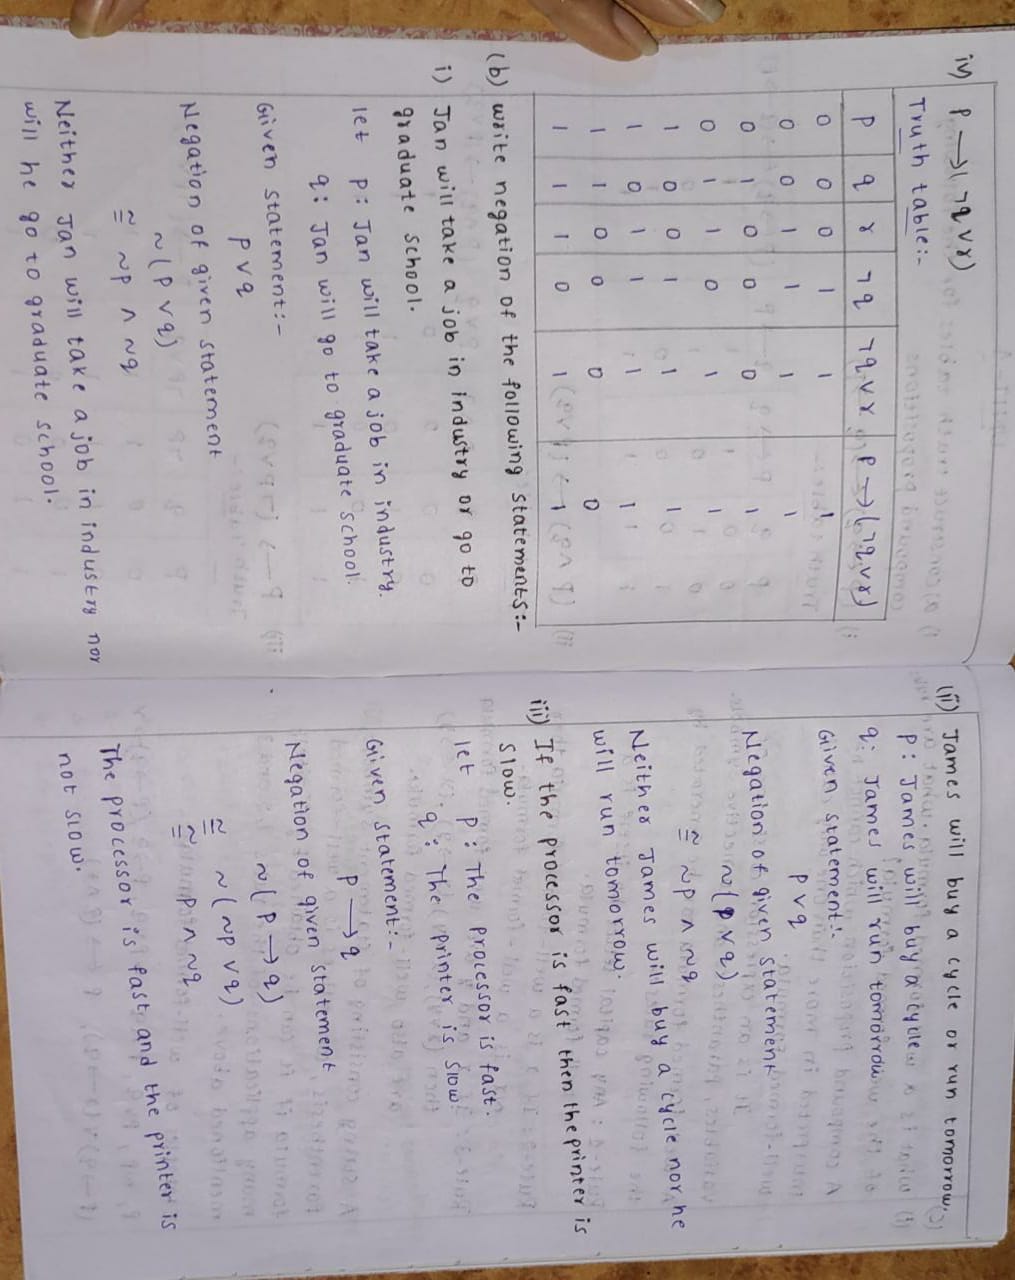 iv) p → (¬q ∨ r)
Truth table:-
p q r ¬q ¬q∨r p→(¬q∨r)
0 0 0 1 1 1
0 0 1 1 1 1
0 1 0 0 0 1
0 1 1 0 1 1
1 0 0 1 1 1
1 0 1 1 1 1
1 1 0 0 0 0
1 1 1 0 1 1
(b) write negation of the following statements:-
i) Jan will take a job in industry or go to
graduate school.
let p: Jan will take a job in industry.
q: Jan will go to graduate school.
Given statement:-
p ∨ q
Negation of given statement
~(p ∨ q)
≅ ~p ∧ ~q
Neither Jan will take a job in industry nor
will he go to graduate school.
(ii) James will buy a cycle or run tomorrow.
p: James will buy a cycle
q: James will run tomorrow
Given statement:-
p ∨ q
Negation of given statement
~(p ∨ q)
≅ ~p ∧ ~q
Neither James will buy a cycle nor he
will run tomorrow.
iii) If the processor is fast then the printer is
slow.
let p: The processor is fast.
q: The printer is slow.
Given statement:-
p → q
Negation of given statement
~(p → q)
≅ ~(~p ∨ q)
≅ p ∧ ~q
The processor is fast and the printer is
not slow.